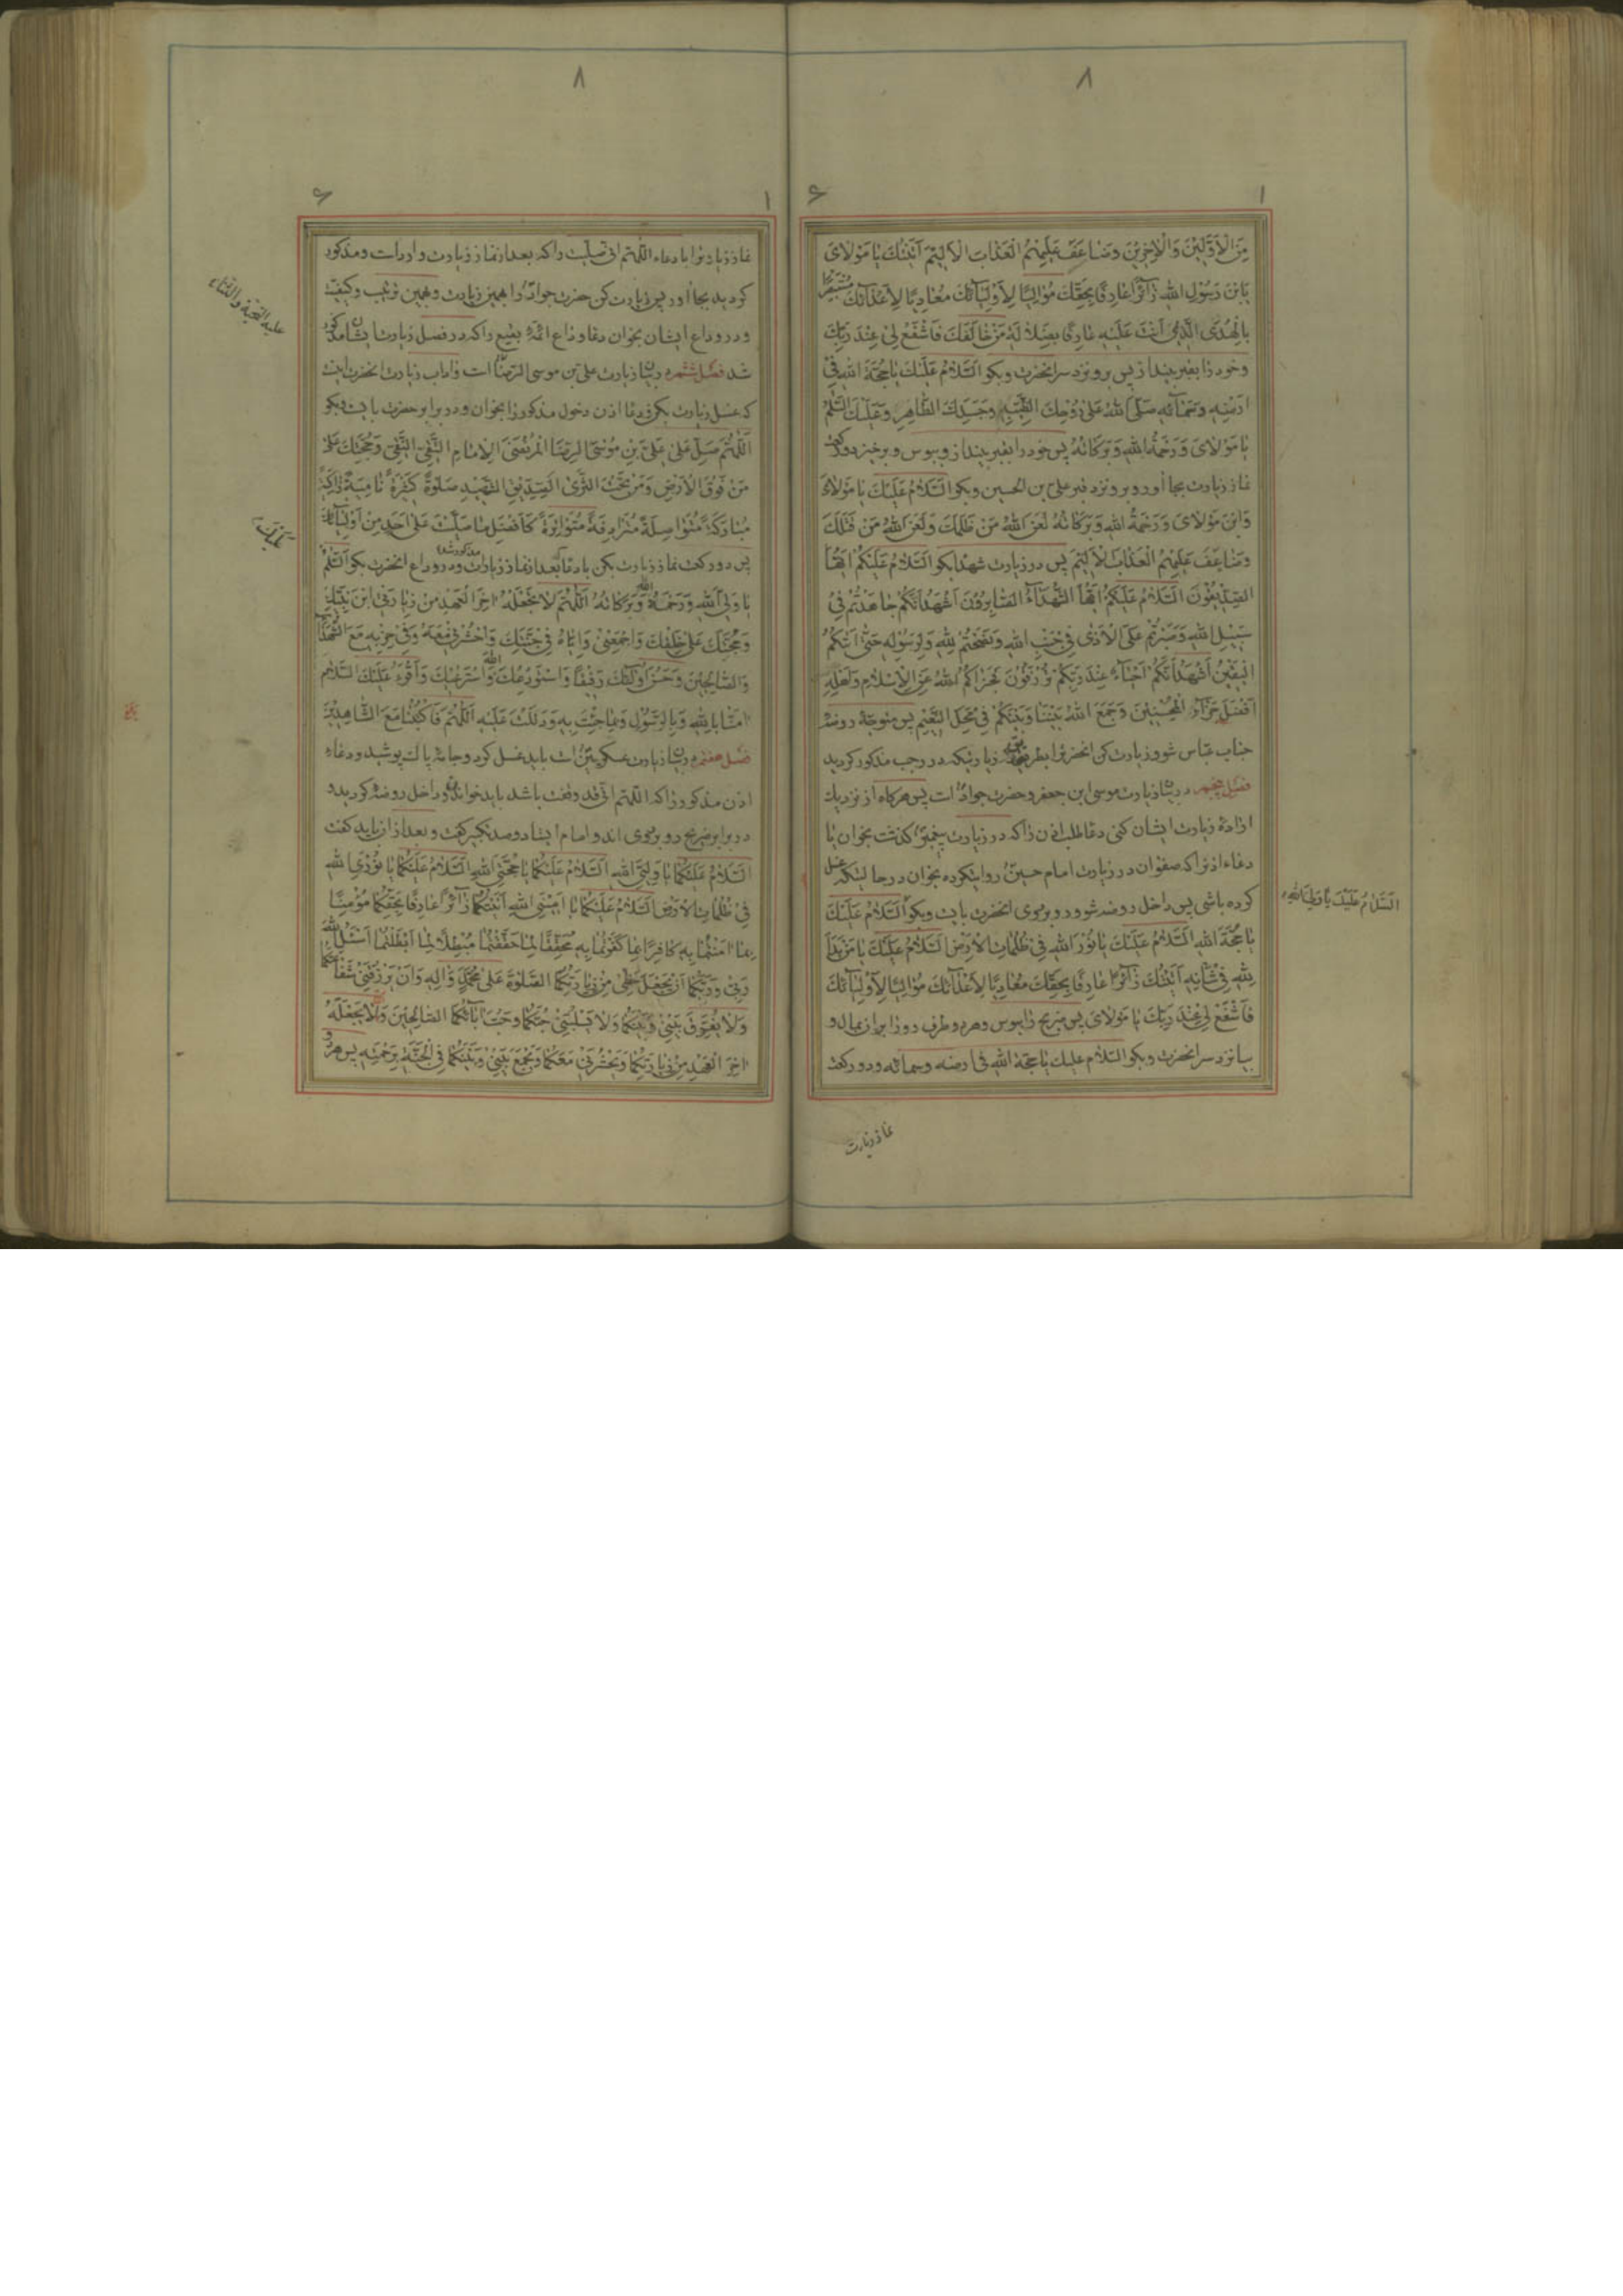 ٨
١ ۶
مِنَ الْاَوَّلِیْنَ وَالْاٰخِرِیْنَ وَضَاعَفَ عَلَیْهِمُ الْعَذَابَ الْاَلِیْمَ اَتَیْتُكَ یَا مَوْلَایَ
یَابْنَ رَسُوْلِ اللهِ زَآئِرًا عَارِفًا بِحَقِّكَ مُوَالِیًا لِاَوْلِیَآئِكَ مُعَادِیًا لِاَعْدَآئِكَ مُسْتَبْصِرًا
بِالْهُدَی الَّذِیْ اَنْتَ عَلَیْهِ عَارِفًا بِضَلَالَةِ مَنْ خَالَفَكَ فَاشْفَعْ لِیْ عِنْدَ رَبِّكَ
وخود را بقبر بینداز پس برو نزد سر انحضرت وبکو اَلسَّلَامُ عَلَیْكَ یَا حُجَّةَ اللهِ فِیْ
اَرْضِهِ وَسَمَآئِهِ صَلَّی اللهُ عَلٰی رُوْحِكَ الطَّیِّبَةِ وَجَسَدِكَ الطَّاهِرِ وَعَلَیْكَ السَّلٰمُ
یَا مَوْلَایَ وَرَحْمَةُ اللهِ وَبَرَكَاتُهُ پس خود را بقبر بینداز وببوس وبرخیز دو رکعت
نماز زیارت بجا اور وبرو نزد قبر علی بن الحسین وبکو اَلسَّلَامُ عَلَیْكَ یَا مَوْلَایَ
وَابْنَ مَوْلَایَ وَرَحْمَةُ اللهِ وَبَرَكَاتُهُ لَعَنَ اللهُ مَنْ ظَلَمَكَ وَلَعَنَ اللهُ مَنْ قَتَلَكَ
وَضَاعَفَ عَلَیْهِمُ الْعَذَابَ الْاَلِیْمَ پس در زیارت شهدا بکو اَلسَّلَامُ عَلَیْكُمْ اَیُّهَا
الصِّدِّیْقُوْنَ اَلسَّلَامُ عَلَیْكُمْ اَیُّهَا الشُّهَدَآءُ الصَّابِرُوْنَ اَشْهَدُ اَنَّكُمْ جَاهَدْتُمْ فِیْ
سَبِیْلِ اللهِ وَصَبَرْتُمْ عَلَی الْاَذٰی فِیْ جَنْبِ اللهِ وَنَصَحْتُمْ لِلّٰهِ وَلِرَسُوْلِهِ حَتّٰی اَتٰكُمُ
الْیَقِیْنُ اَشْهَدُ اَنَّكُمْ اَحْیَآءٌ عِنْدَ رَبِّكُمْ تُرْزَقُوْنَ فَجَزَاكُمُ اللهُ عَنِ الْاِسْلَامِ وَاَهْلِهِ
اَفْضَلَ جَزَآءِ الْمُحْسِنِیْنَ وَجَمَعَ اللهُ بَیْنَنَا وَبَیْنَكُمْ فِیْ مَحَلِّ النَّعِیْمِ پس متوجهٔ روضهٔ
جناب عباس شو وزیارت کن انحضرترا بطریق زیارتیکه در رجب مذکور کردید
فصل پنجم در بیان زیارت موسی ابن جعفر وحضرت جواد است پس هرکاه از نزدیك
ارادهٔ زیارت ایشان کنی دعا طلب اذن را که در زیارت پیغمبر کذشت بخوان یا
دعاء اذنرا که صفوان در زیارت امام حسین روایتکرده بخوان در حالتیکه غسل
کرده باشی پس داخل روضه شو ورو بروی انحضرت بایست وبکو اَلسَّلَامُ عَلَیْكَ
اَلسَّلَامُ عَلَیْكَ یَا وَلِیَّ اللهِ
یَا حُجَّةَ اللهِ اَلسَّلَامُ عَلَیْكَ یَا نُوْرَ اللهِ فِیْ ظُلُمَاتِ الْاَرْضِ اَلسَّلَامُ عَلَیْكَ یَا مَنْ بَدَا
لِلّٰهِ فِیْ شَأْنِهِ اَتَیْتُكَ زَآئِرًا عَارِفًا بِحَقِّكَ مُعَادِیًا لِاَعْدَآئِكَ مُوَالِیًا لِاَوْلِیَآئِكَ
فَاشْفَعْ لِیْ عِنْدَ رَبِّكَ یَا مَوْلَایَ پس ضریح را ببوس وهر دو طرف رو را بران بمال و
بیا نزد سر انحضرت وبکو السّلام علیك یا حجة اللهِ فی ارضه وسمائه ودو رکعت
نماز زیارت
٨
١ ۶
نماز زیارترا با دعاء اللّهمّ انی صلّیت را که بعد از نماز زیارت وارد است ومذکور
کردید بجا اور پس زیارت کن حضرت جواد را بهمین زیارت وبهمین ترتیب وکیفیت
ودر وداع ایشان بخوان دعاء وداع ائمهٔ بقیع را که در فصل زیارت ایشان مذکور
علیه التحیة والثناء
شد فصل ششم در بیان زیارت علی بن موسی الرضا است واداب زیارت انحضرت اینست
که غسل زیارت بکن ودعا اذن دخول مذکور را بخوان ودر برابر حضرت بایست وبکو
اَللّٰهُمَّ صَلِّ عَلٰی عَلِیِّ بْنِ مُوْسَی الرِّضَا الْمُرْتَضَی الْاِمَامِ التَّقِیِّ النَّقِیِّ وَحُجَّتِكَ عَلٰی
مَنْ فَوْقَ الْاَرْضِ وَمَنْ تَحْتَ الثَّرٰی الصِّدِّیْقِ الشَّهِیْدِ صَلٰوةً كَثِیْرَةً نَامِیَةً زَاكِیَةً
مُبَارَكَةً مُتَوَاصِلَةً مُتَرَادِفَةً مُتَوَاتِرَةً كَاَفْضَلِ مَا صَلَّیْتَ عَلٰی اَحَدٍ مِنْ اَوْلِیَآئِكَ
پس دو رکعت نماز زیارت بکن با دعا که بعد از نماز زیارت مذکور شد ودر وداع انحضرت بکو اَلسَّلٰمُ
یَا وَلِیَّ اللهِ وَرَحْمَةُ اللهِ وَبَرَكَاتُهُ اَللّٰهُمَّ لَا تَجْعَلْهُ اٰخِرَ الْعَهْدِ مِنْ زِیَارَتِیْ ابْنَ نَبِیِّكَ
وَحُجَّتَكَ عَلٰی خَلْقِكَ وَاجْمَعْنِیْ وَاِیَّاهُ فِیْ جَنَّتِكَ وَاحْشُرْنِیْ مَعَهُ وَفِیْ حِزْبِهِ مَعَ الشُّهَدَآءِ
وَالصَّالِحِیْنَ وَحَسُنَ اُولٰٓئِكَ رَفِیْقًا وَاَسْتَوْدِعُكَ اللهَ وَاَسْتَرْعِیْكَ وَاَقْرَءُ عَلَیْكَ السَّلَامَ
اٰمَنَّا بِاللهِ وَبِالرَّسُوْلِ وَبِمَا جِئْتَ بِهِ وَدَلَلْتَ عَلَیْهِ اَللّٰهُمَّ فَاكْتُبْنَا مَعَ الشَّاهِدِیْنَ
فصل هفتم در بیان زیارت عسکریین است باید غسل کرد وجامهٔ پاك پوشید ودعاء
اذن مذکور را که اللّهمّ انی قد وقفت باشد باید خواند وداخل روضه کردید و
در برابر ضریح رو بروی اندو امام ایستاد وصد تکبیر کفت وبعد ازان باید کفت
اَلسَّلَامُ عَلَیْكُمَا یَا وَلِیَّیِ اللهِ اَلسَّلَامُ عَلَیْكُمَا یَا حُجَّتَیِ اللهِ اَلسَّلَامُ عَلَیْكُمَا یَا نُوْرَیِ اللهِ
فِیْ ظُلُمَاتِ الْاَرْضِ اَلسَّلَامُ عَلَیْكُمَا یَا اَمِیْنَیِ اللهِ اَتَیْتُكُمَا زَآئِرًا عَارِفًا بِحَقِّكُمَا مُؤْمِنًا
بِمَا اٰمَنْتُمَا بِهِ كَافِرًا بِمَا كَفَرْتُمَا بِهِ مُحَقِّقًا لِمَا حَقَّقْتُمَا مُبْطِلًا لِمَا اَبْطَلْتُمَا اَسْئَلُ اللهَ
رَبِّیْ وَرَبَّكُمَا اَنْ یَجْعَلَ حَظِّیْ مِنْ زِیَارَتِكُمَا الصَّلٰوةَ عَلٰی مُحَمَّدٍ وَاٰلِهِ وَاَنْ یَرْزُقَنِیْ شَفَاعَتَكُمَا
وَلَا یُفَرِّقَ بَیْنِیْ وَبَیْنَكُمَا وَلَا یَسْلُبَنِیْ حُبَّكُمَا وَحُبَّ اٰبَآئِكُمَا الصَّالِحِیْنَ وَاَلَّا یَجْعَلَهُ
اٰخِرَ الْعَهْدِ مِنْ زِیَارَتِكُمَا وَیَحْشُرَنِیْ مَعَكُمَا وَیَجْمَعَ بَیْنِیْ وَبَیْنَكُمَا فِی الْجَنَّةِ بِرَحْمَتِهِ پس هر دو